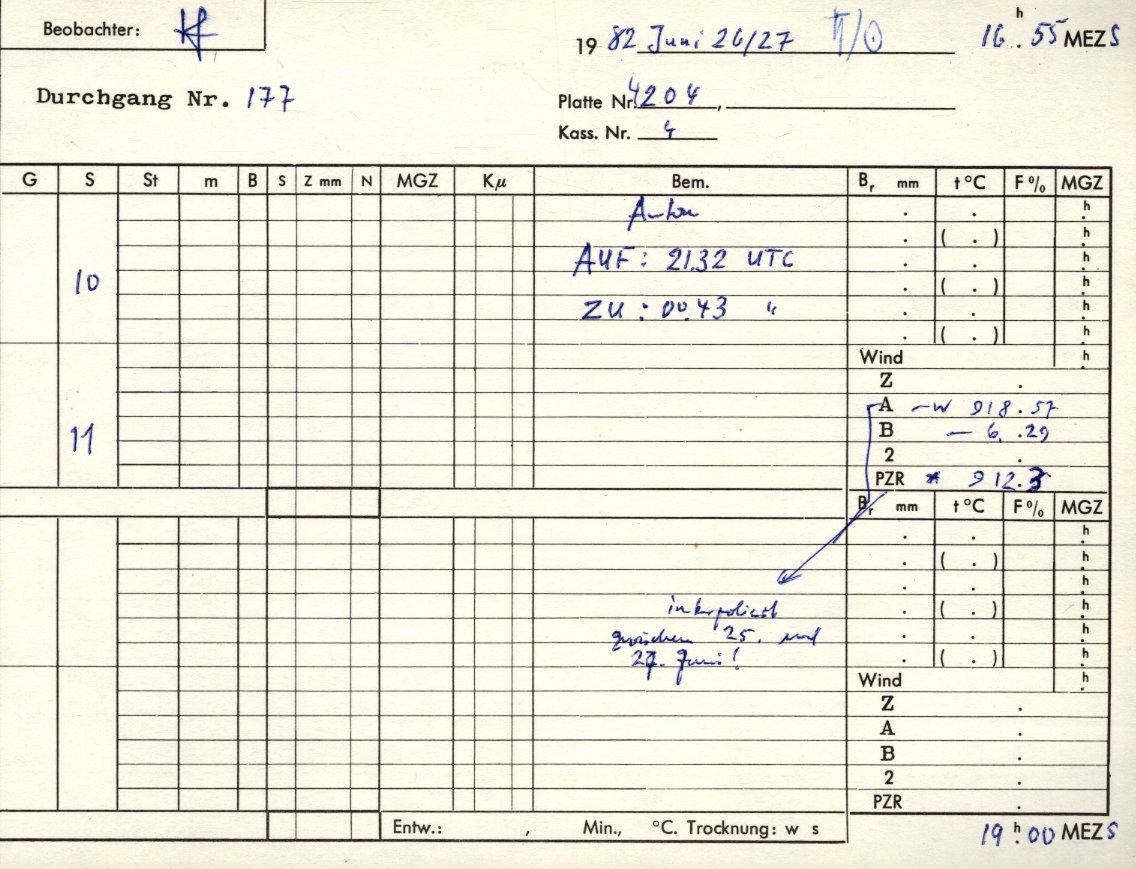 Beobachter: Kf
19 82 Juni 26/27 ♄/☉ 16 h . 55 MEZ S
Durchgang Nr. 177
Platte Nr. 4204 ,
Kass. Nr. 4
G S St m B S Z mm N MGZ Kμ Bem. Br mm t °C F % MGZ
Anton
. . h
. ( . ) h
AUF: 21.32 UTC . . h
10 . ( . ) h
ZU : 00.43 " . . h
. ( . ) h
Wind h
Z .
A 918.57
11 B — 6. .29
2 .
PZR * 912.3
Br mm t °C F % MGZ
. . h
. ( . ) h
. . h
interpoliert . ( . ) h
zwischen 25. und . . h
27. Juni! . ( . ) h
Wind h
Z .
A .
B .
2 .
PZR .
Entw.: , Min., °C. Trocknung: w s
19 h . 00 MEZ S